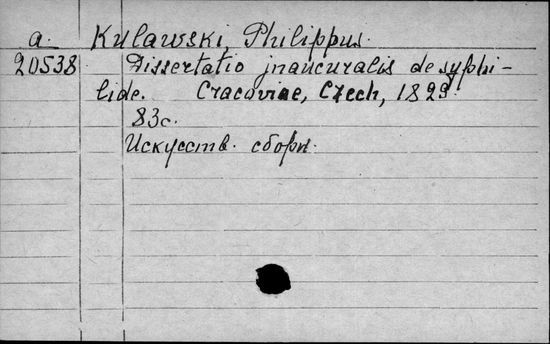 a. Kulawski, Philippus.
20538 Dissertatio jnaucuralis de syphi-
lide. Cracoviae, Czech, 1829.
83c.
Искусств. сборн.